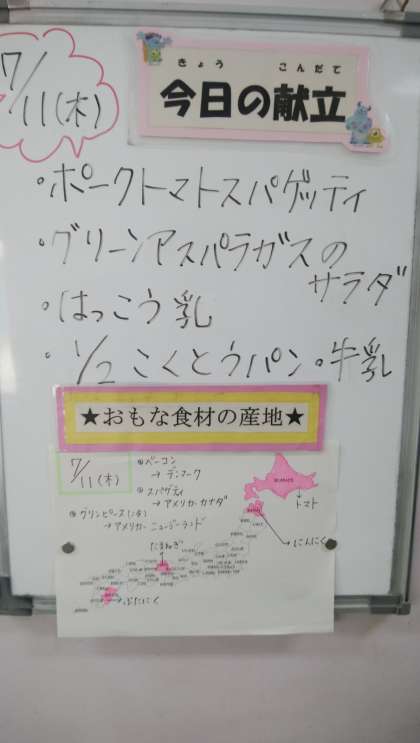 7/11(木)
きょう こんだて
今日の献立
・ポークトマトスパゲッティ
・グリーンアスパラガスの
サラダ
・はっこう乳
・1/2こくとうパン・牛乳
★おもな食材の産地★
7/11(木)
ベーコン
→デンマーク
スパゲティ
→アメリカ・カナダ
グリンピース(冷)
→アメリカ・ニュージーランド
トマト
にんにく
たまねぎ
ぶたにく